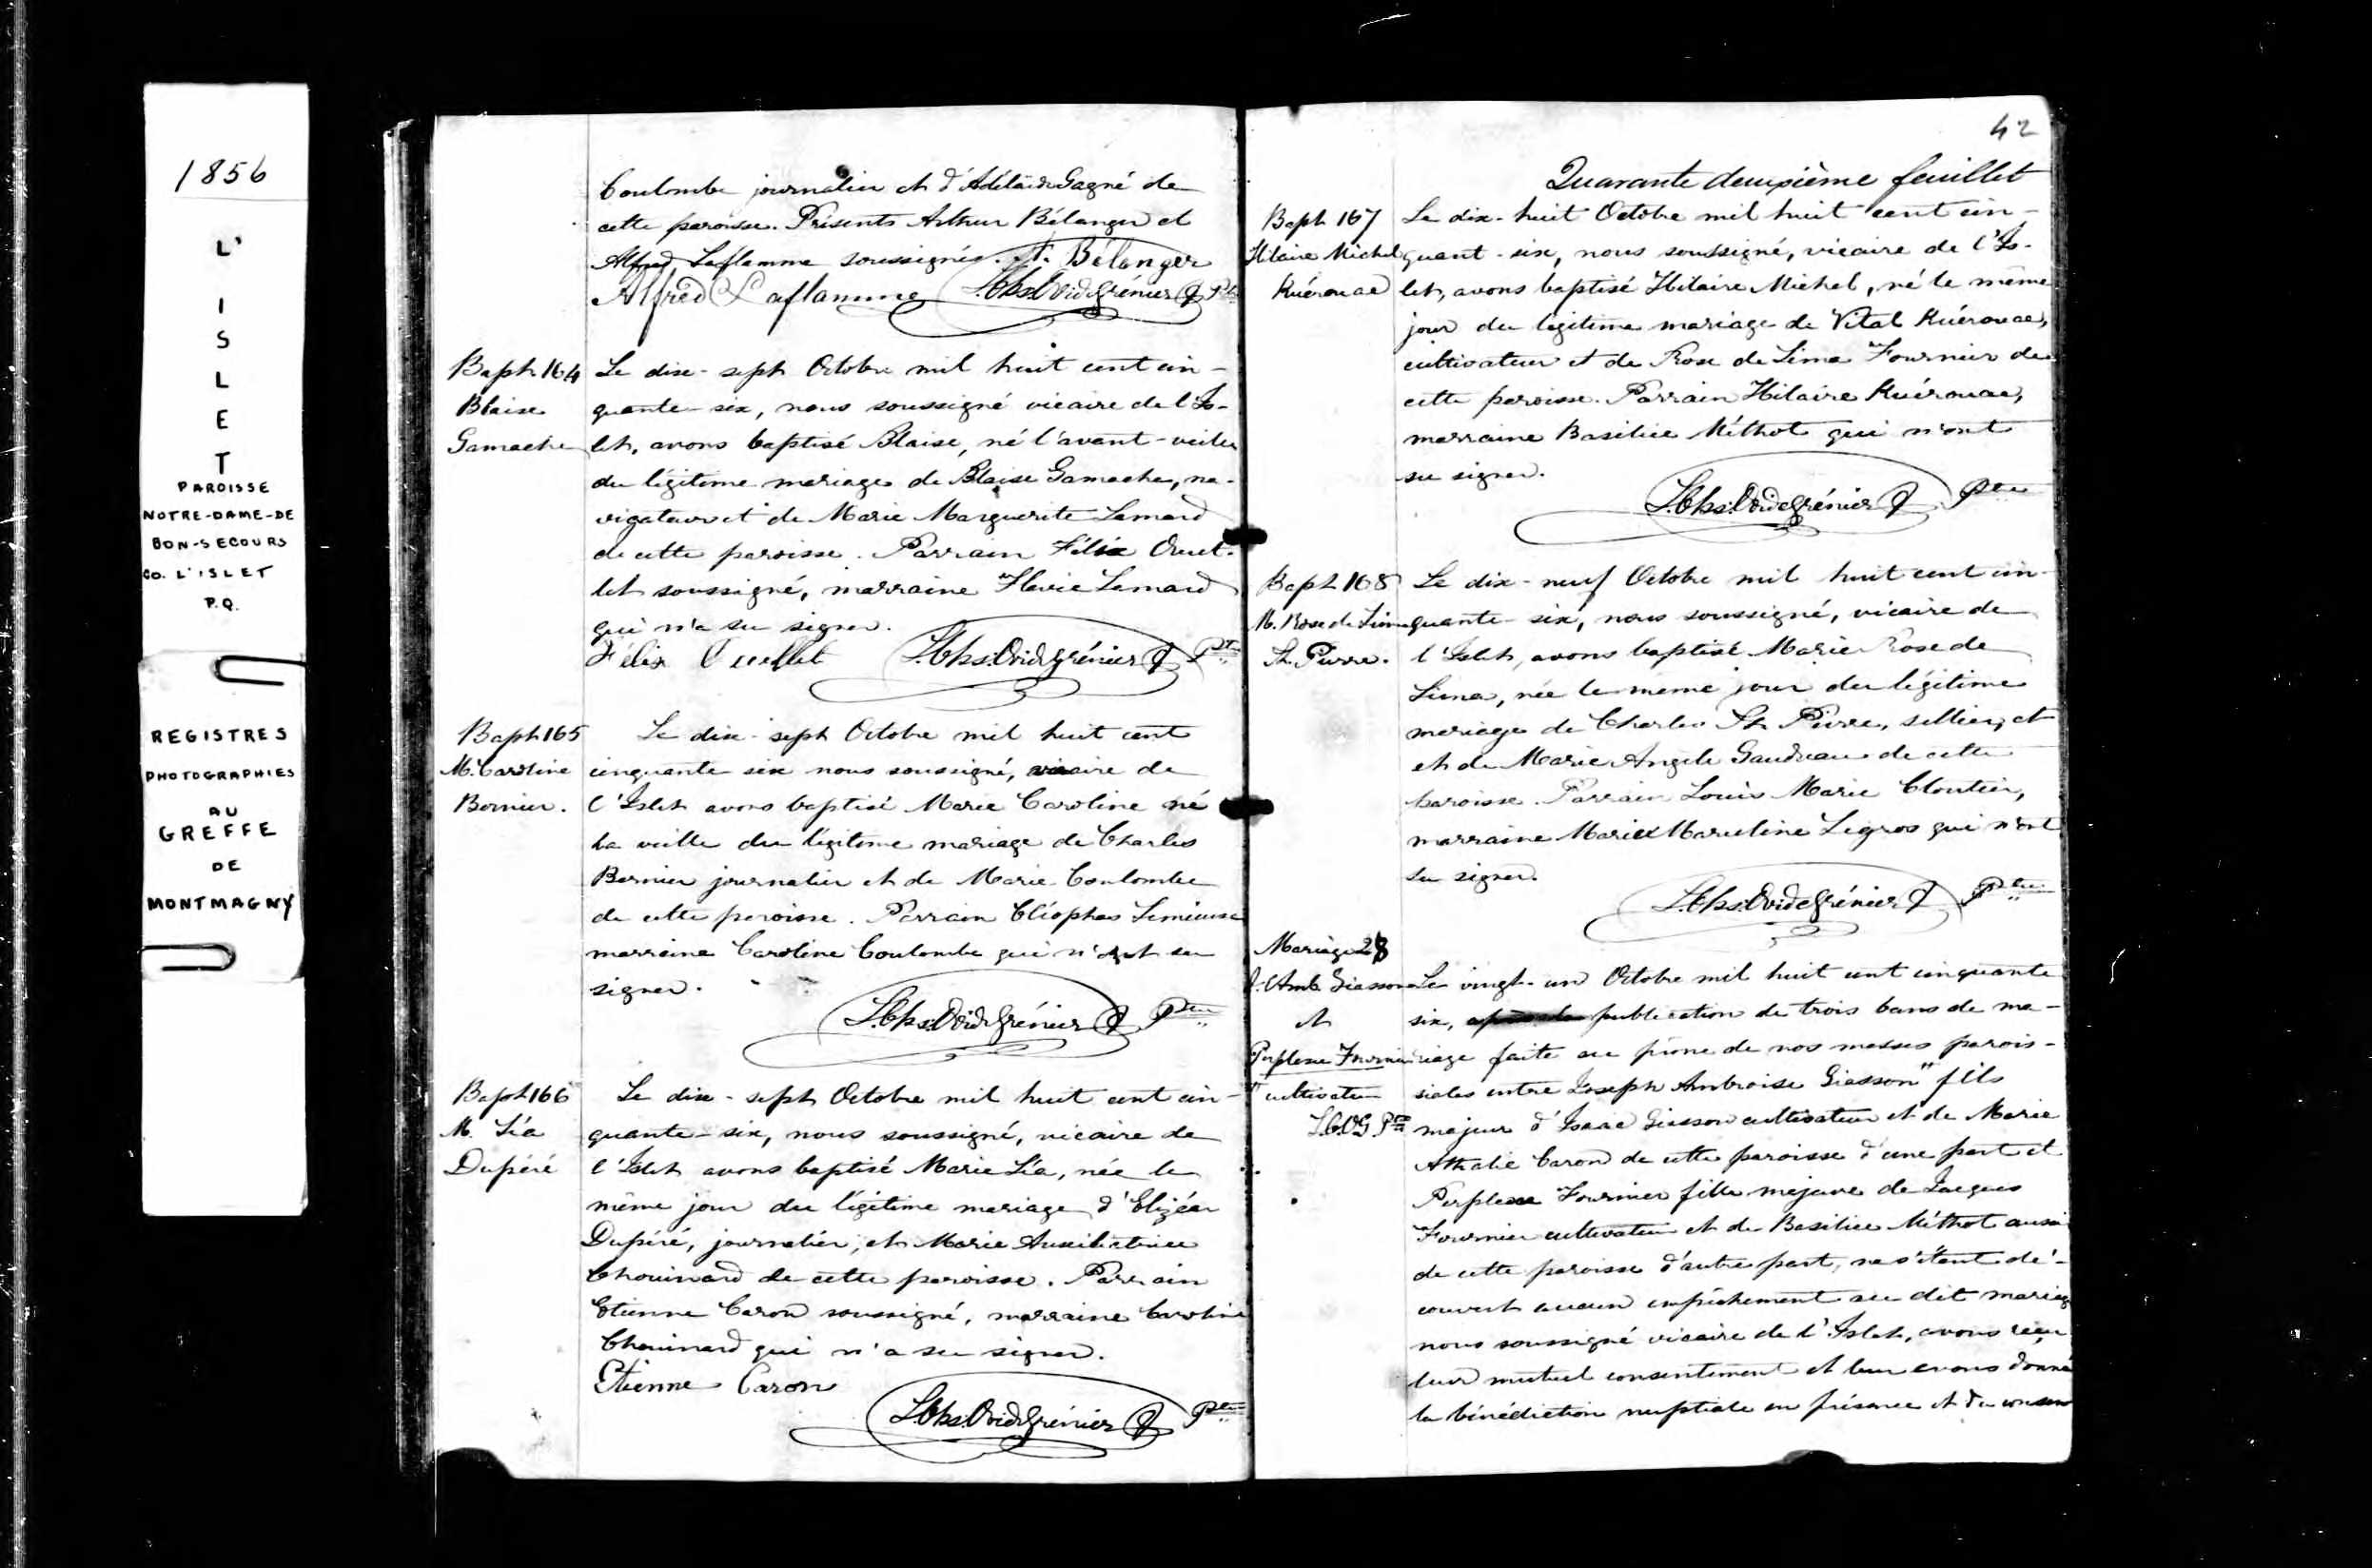 1856
L'
I
S
L
E
T
PAROISSE
NOTRE-DAME-DE
BON-SECOURS
CO. L'ISLET
P.Q.
REGISTRES
PHOTOGRAPHIES
AU
GREFFE
DE
MONTMAGNY
Coulombe journalier et d'Adélaïde Gagné de
cette paroisse. Présents Arthur Bélanger et
Alfred Laflamme soussignés. A. Bélanger
Alfred Laflamme L. Chs. Ovide Grénier Ptre
Bapt 164
Blaise
Gamache
Le dix-sept Octobre mil huit cent cin-
quante-six, nous soussigné vicaire de l'Is-
let, avons baptisé Blaise, né l'avant-veille
du légitime mariage de Blaise Gamache, na-
vigateur et de Marie Marguerite Lemard
de cette paroisse. Parrain Félix Ouel-
let soussigné, marraine Flavie Lemard
qui n'a su signer.
Félix Ouellet L. Chs. Ovide Grénier Ptre
Bapt 165
M. Caroline
Bernier.
Le dix-sept Octobre mil huit cent
cinquante six nous soussigné, vicaire de
l'Islet avons baptisé Marie Caroline né
la veille du légitime mariage de Charles
Bernier journalier et de Marie Coulombe
de cette paroisse. Parrain Cléophas Lemieux
marraine Caroline Coulombe qui n'ont su
signer.
L. Chs. Ovide Grénier Ptre
Bapt 166
M. Léa
Dupéré
Le dix-sept Octobre mil huit cent cin-
quante-six, nous soussigné, vicaire de
l'Islet avons baptisé Marie Léa, née le
même jour du légitime mariage d'Elizéar
Dupéré, journalier, et Marie Auxiliatrice
Chouinard de cette paroisse. Parrain
Etienne Caron soussigné, marraine Caroline
Chouinard qui n'a su signer.
Etienne Caron
L. Chs. Ovide Grénier Ptre
42
Quarante deuxième feuillet
Bapt 167
Hilaire Michel
Kuérouac
Le dix-huit Octobre mil huit cent cin-
quant-six, nous soussigné, vicaire de l'Is-
let, avons baptisé Hilaire Michel, né le même
jour du légitime mariage de Vital Kuérouac,
cultivateur et de Rose de Lima Fournier de
cette paroisse. Parrain Hilaire Kuérouac,
marraine Basilice Méthot qui n'ont
su signer.
L. Chs. Ovide Grénier Ptre
Bapt 168
M. Rose de Lima
St. Pierre.
Le dix-neuf Octobre mil huit cent cin-
quante-six, nous soussigné, vicaire de
l'Islet, avons baptisé Marie Rose de
Lima, née le même jour du légitime
mariage de Charles St. Pierre, sellier, et
et de Marie Angèle Gaudreau de cette
paroisse. Parrain Louis Marie Cloutier,
marraine Marie Marceline Legros qui n'ont
su signer.
L. Chs. Ovide Grénier Ptre
Mariage 28
J. Amb. Giasson
et
Perplexe Fournier
" cultivateur
L.C.O.G. Ptre
Le vingt-un Octobre mil huit cent cinquante
six, publication de trois bans de ma-
riage faite au prône de nos messes parois-
siales entre Joseph Ambroise Giasson " fils
majeur d'Isaac Giasson cultivateur et de Marie
Athalie Caron de cette paroisse d'une part et
Perplexe Fournier fille majeure de Jacques
Fournier cultivateur et de Basilice Méthot aussi
de cette paroisse d'autre part, ne s'étant dé-
couvert aucun empêchement au dit mariage
nous soussigné vicaire de l'Islet, avons reçu
leur mutuel consentement et leur avons donné
la bénédiction nuptiale en présence et du consen